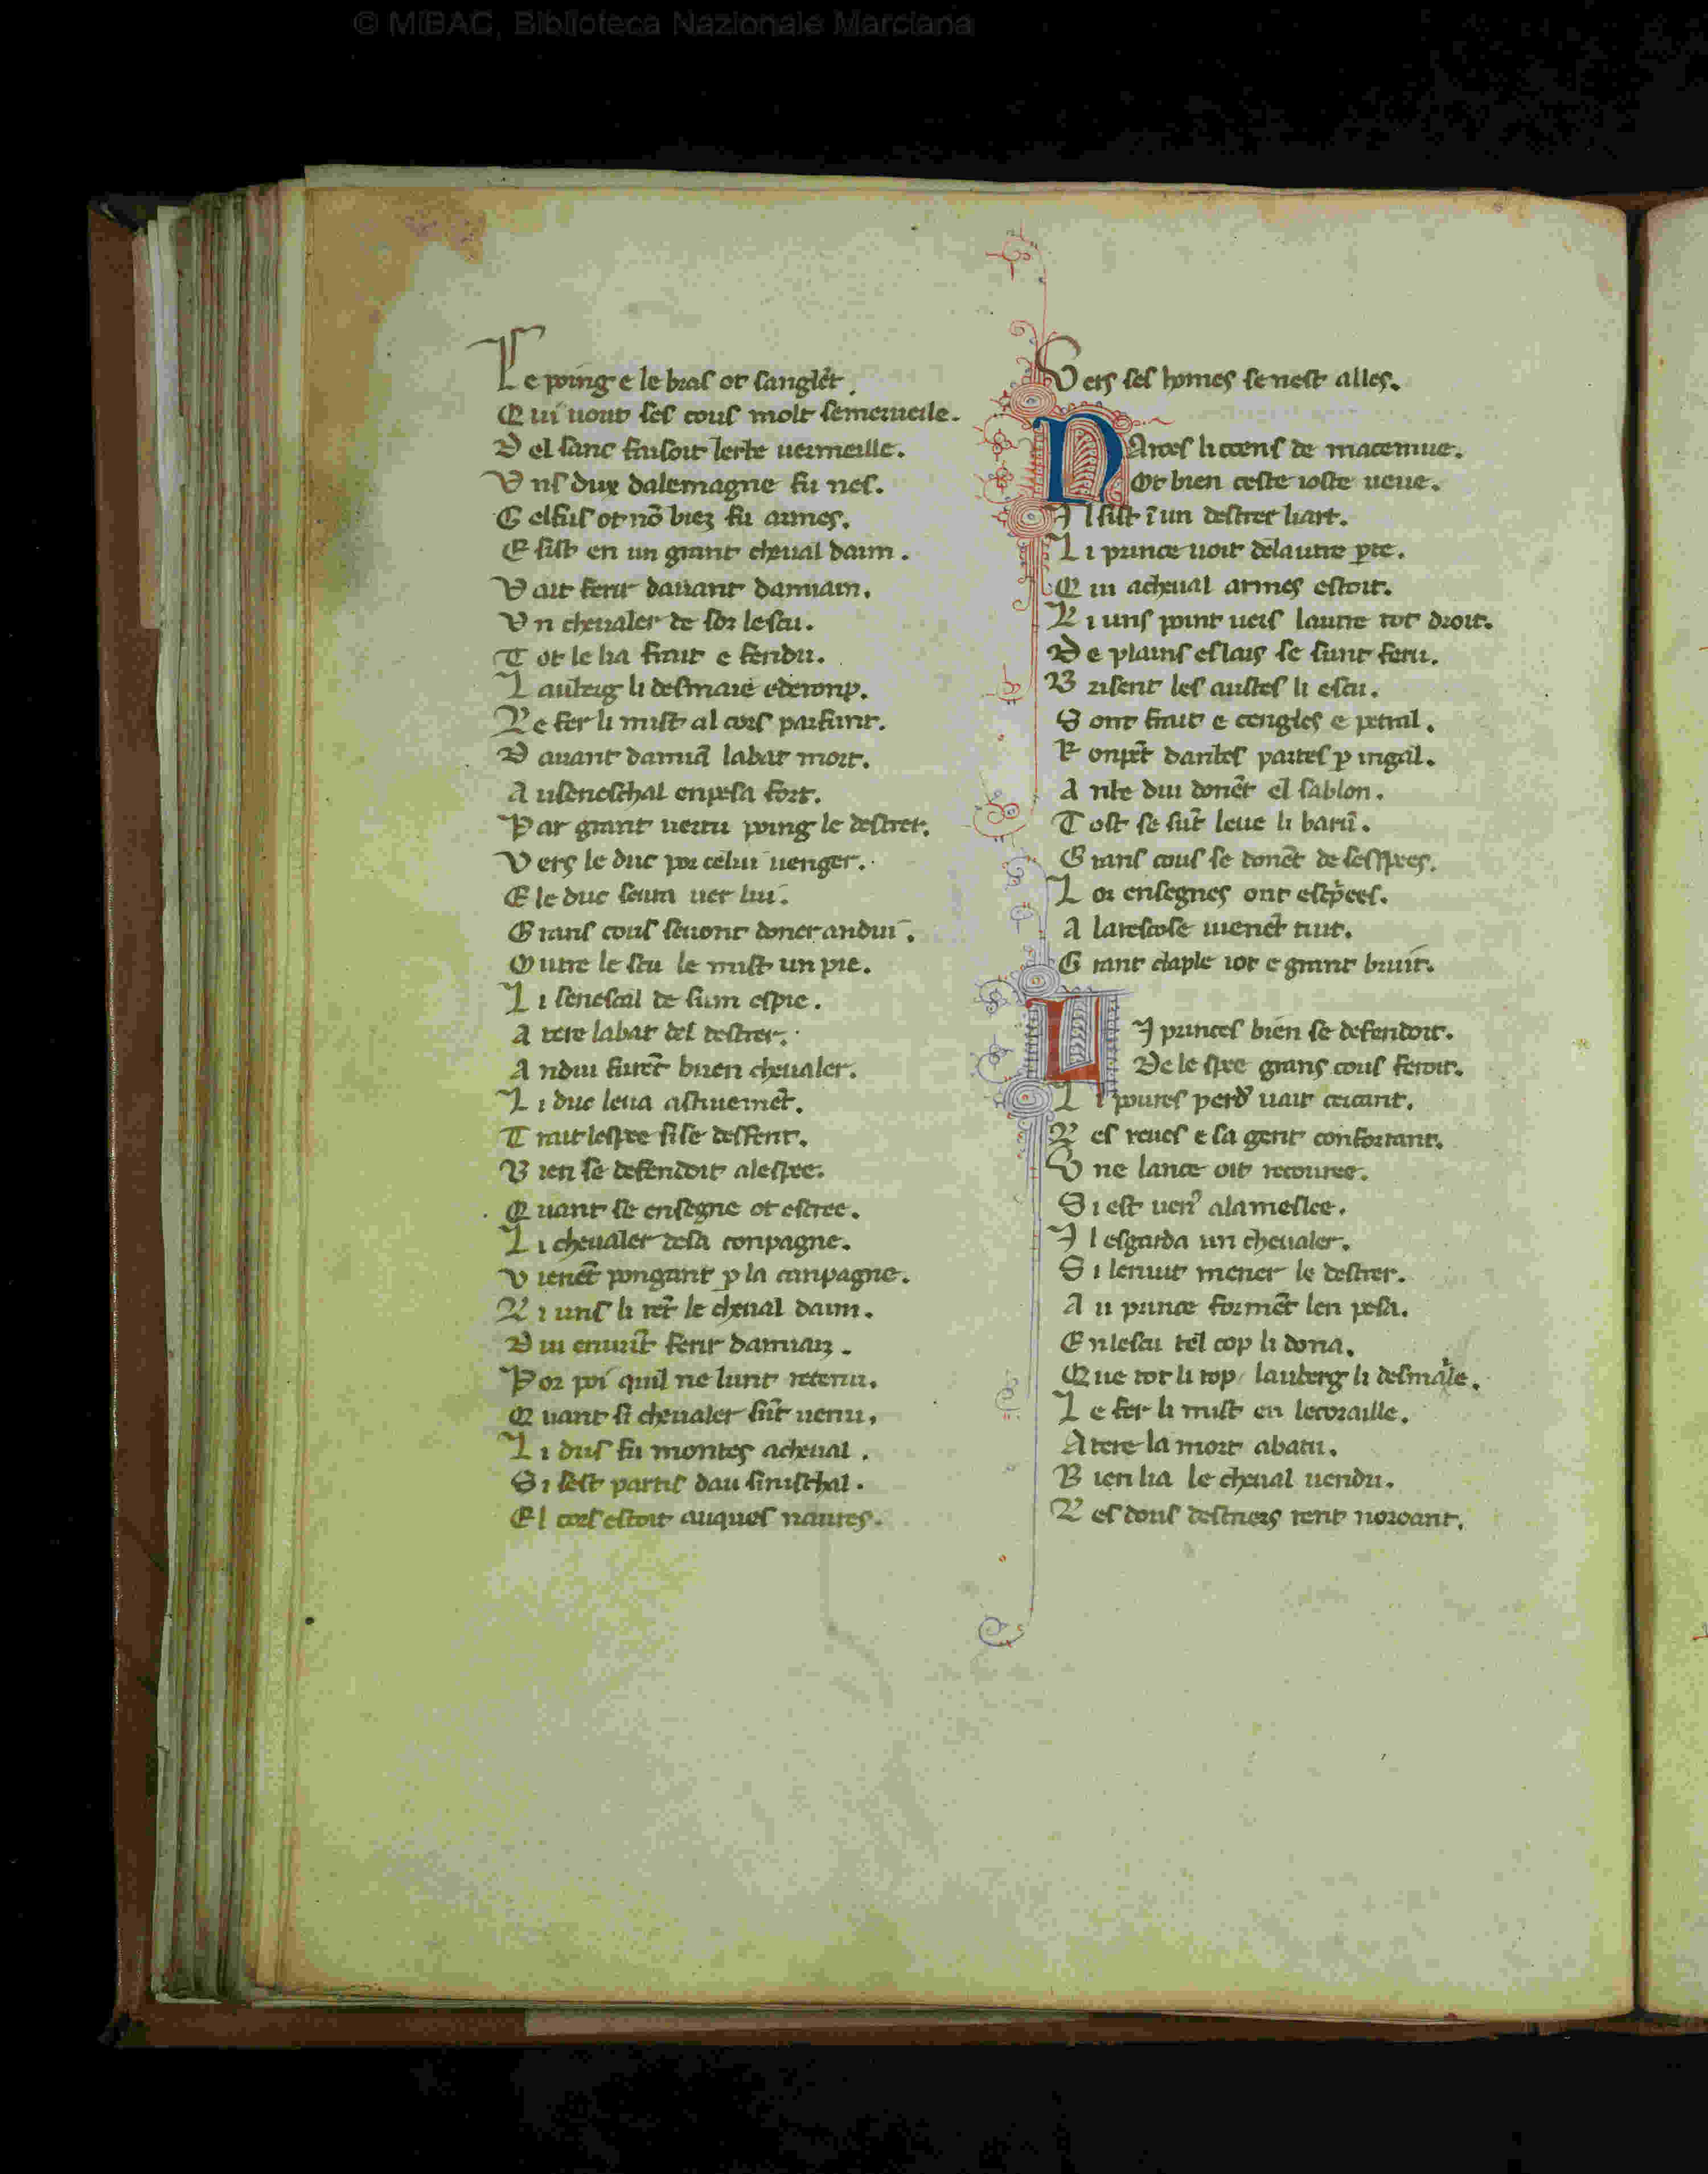 © MiBAC, Biblioteca Nazionale Marciana
Le poing e le bras ot sanglēt.
Qui uont ses cous molt semerueile.
Del sanc faisoit lerbe uermeille.
Uns dux dalemagne fu nes.
Gelfus ot nō biez fu armes.
E sist en un grant cheual baim.
Vait ferir dauant damiam.
Un cheualer de sor lescu.
Tot le li a frait e fendu.
Lauberg li desmaie e deronp.
Le fer li mist al cors parfunt.
Dauant damiā labat mort.
Au seneschal en pesa fort.
Par grant uertu poing le destrer.
Vers le duc por celui uenger.
E le duc seuin uer lui.
Grans cous seuont doner andui.
Outre le scu le mist un pie.
Li senescal de sum espie.
A tere labat del destrer.
Andui furēt buen cheualer.
Li duc leua astiuemēt.
Trait lespee si se desfent.
Bien se defendoit a lespee.
Quant se ensegne ot escree.
Li cheualer de sa conpagne.
Vienēt pongant p la canpagne.
Li uns li rēt le cheual baim.
Dui enuūt ferir damianz.
Por poi quil ne lunt retenu.
Quant si cheualer sūt uenu,
Li dus fu montes a cheual.
Si sest partis dau sinischal.
El cors estoit auques naures.
Vers ses homes se nest alles.
NArces li coens de macemue.
Ot bien ceste ioste ueue.
Il sist ī un destrer liart.
Li prince uoit de lautre pte.
Qui a cheual armes estoit.
Li uns point uers lautre tot droit.
De plains eslais se sunt feru.
Brisent les austes li escu.
Sont frait e cengles e petral.
Ronpēt danbes partes p ingal.
Anbe dui donēt el sablon.
Tost se sūt leue li barū.
Grans cous se donēt de sespees.
Lor ensegnes ont escrees.
A la rescose uienēt tuit.
Grant chaple iot e grant bruit.
LI princes bien se defendoit.
De le spee grans cous feroit.
Li poures perdʼ uait cercant.
Les reues e sa gent confortant.
Une lance oit recouree.
Si est uenʼ a la meslee.
Il esgarda un cheualer.
Si len uit mener le destrer.
Au prince formēt len pesa.
En lescu tel cop li dona.
Que tot li rop lauberg li desmaile.
Le fer li mist en le coraille.
A tere la mort abatu.
Bien li a le cheual uendu.
Les dous destriers rent noroant.